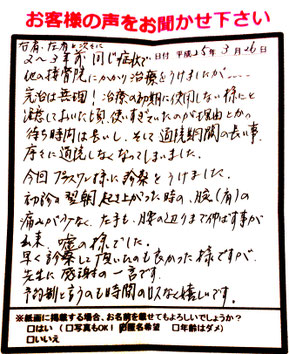 お客様の声をお聞かせ下さい
日付 平成25年3月26日
2〜3年前 同じ症状で
他の接骨院にかかり治療をうけましたが……
完治は無理！治療の初期に使用しない様にと
注意しておいた頃、使いすぎていたのが理由とか
待ち時間は長いし、そして通院期間の長い事、
序々に通院しなくなってしまいました。
今回プラスワン様に診察をうけました。
初診の翌朝 起き上がった時の、腕(肩)の
痛みが少なく、たすも、腰の辺りまで伸ばす事が
出来、嘘の様でした。
早く診察して頂いたのも良かった様ですが、
先生に感謝の一言です。
予約制と言うのも時間のロスなく嬉しいです。
※紙面に掲載する場合、お名前を載せてもよろしいでしょうか？
□はい（□写真もOK！ 匿名希望 □年齢はダメ）
□いいえ